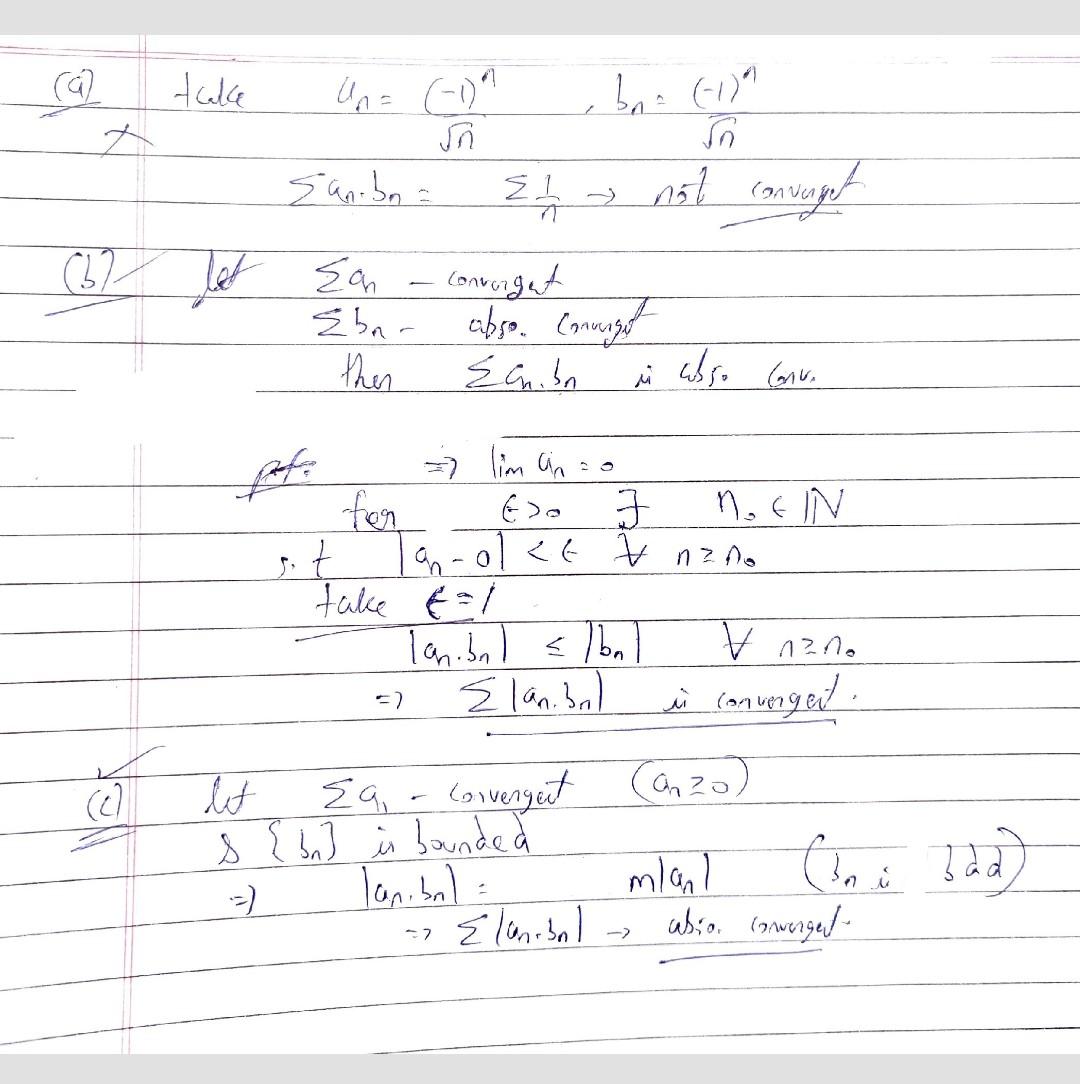 (a) take aₙ = (-1)ⁿ/√n , bₙ = (-1)ⁿ/√n
×
Σaₙ.bₙ = Σ1/n → not convergent
(b) ✓ let Σaₙ – convergent
Σbₙ – abso. convergent
then Σaₙ.bₙ is abso conv.
pf: ⇒ lim aₙ = 0
for ϵ>0 ∃ n₀ ∈ ℕ
s.t |aₙ-0| < ϵ ∀ n≥n₀
take ϵ=1
|aₙ.bₙ| ≤ |bₙ| ∀ n≥n₀
⇒ Σ|aₙ.bₙ| is convergent.
✓
(c) let Σaₙ – convergent (aₙ≥0)
& {bₙ} is bounded
⇒ |aₙ.bₙ| = m|aₙ| (bₙ is bdd)
⇒ Σ|aₙ.bₙ| → abso. convergent.